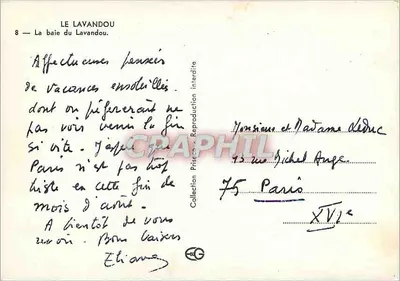 LE LAVANDOU
8 — La baie du Lavandou.
Affectueuses pensées
de vacances ensoleillées
dont on préfèrerait ne
pas voir venir la fin
si vite. J'espère que
Paris n'est pas trop
triste en cette fin de
mois d'août.
A bientôt de vous
revoir. Bons baisers
Eliane
Collection Priscard Reproduction interdite
Monsieur et Madame Leduc
13 rue Michel Ange
75 Paris
XVIe
CPAPHIL